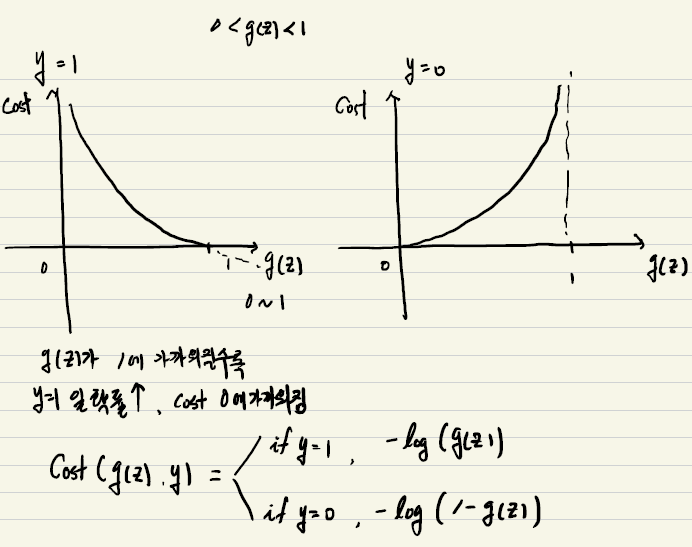 0 < g(z) < 1
y = 1
y = 0
Cost
Cost
0
1
g(z)
0 ~ 1
0
1
g(z)
g(z)가 1에 가까워질수록
y=1 일 확률↑, cost 0에 가까워짐
Cost (g(z), y) =
if y=1, -log (g(z))
if y=0, -log (1-g(z))